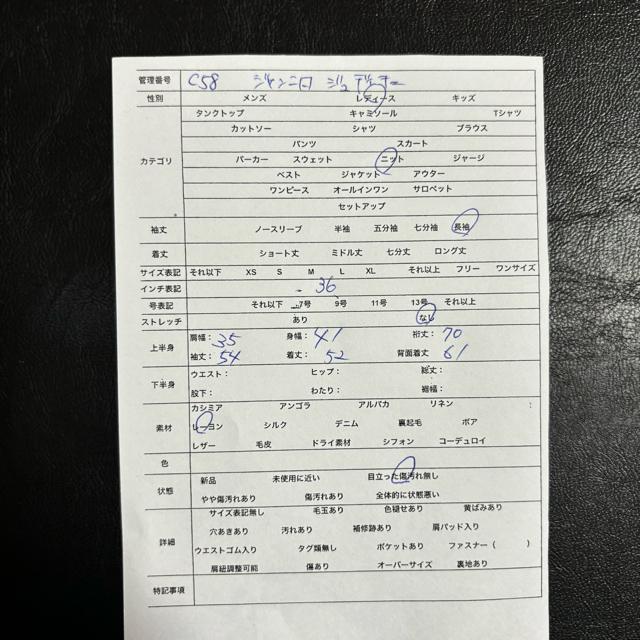 管理番号 C58 ジャンニロ ジュディチー
性別 メンズ レディース キッズ
カテゴリ
タンクトップ キャミソール Tシャツ
カットソー シャツ ブラウス
パンツ スカート
パーカー スウェット ニット ジャージ
ベスト ジャケット アウター
ワンピース オールインワン サロペット
セットアップ
袖丈 ノースリーブ 半袖 五分袖 七分袖 長袖
着丈 ショート丈 ミドル丈 七分丈 ロング丈
サイズ表記 それ以下 XS S M L XL それ以上 フリー ワンサイズ
インチ表記 36
号表記 それ以下 7号 9号 11号 13号 それ以上
ストレッチ あり なし
上半身
肩幅: 35 身幅: 41 裄丈: 70
袖丈: 54 着丈: 52 背面着丈 61
下半身
ウエスト: ヒップ: 総丈:
股下: わたり: 裾幅:
素材
カシミア アンゴラ アルパカ リネン :
レーヨン シルク デニム 裏起毛 ボア
レザー 毛皮 ドライ素材 シフォン コーデュロイ
色
状態
新品 未使用に近い 目立った傷汚れ無し
やや傷汚れあり 傷汚れあり 全体的に状態悪い
詳細
サイズ表記無し 毛玉あり 色褪せあり 黄ばみあり
穴あきあり 汚れあり 補修跡あり 肩パッド入り
ウエストゴム入り タグ類無し ポケットあり ファスナー ( )
肩紐調整可能 傷あり オーバーサイズ 裏地あり
特記事項